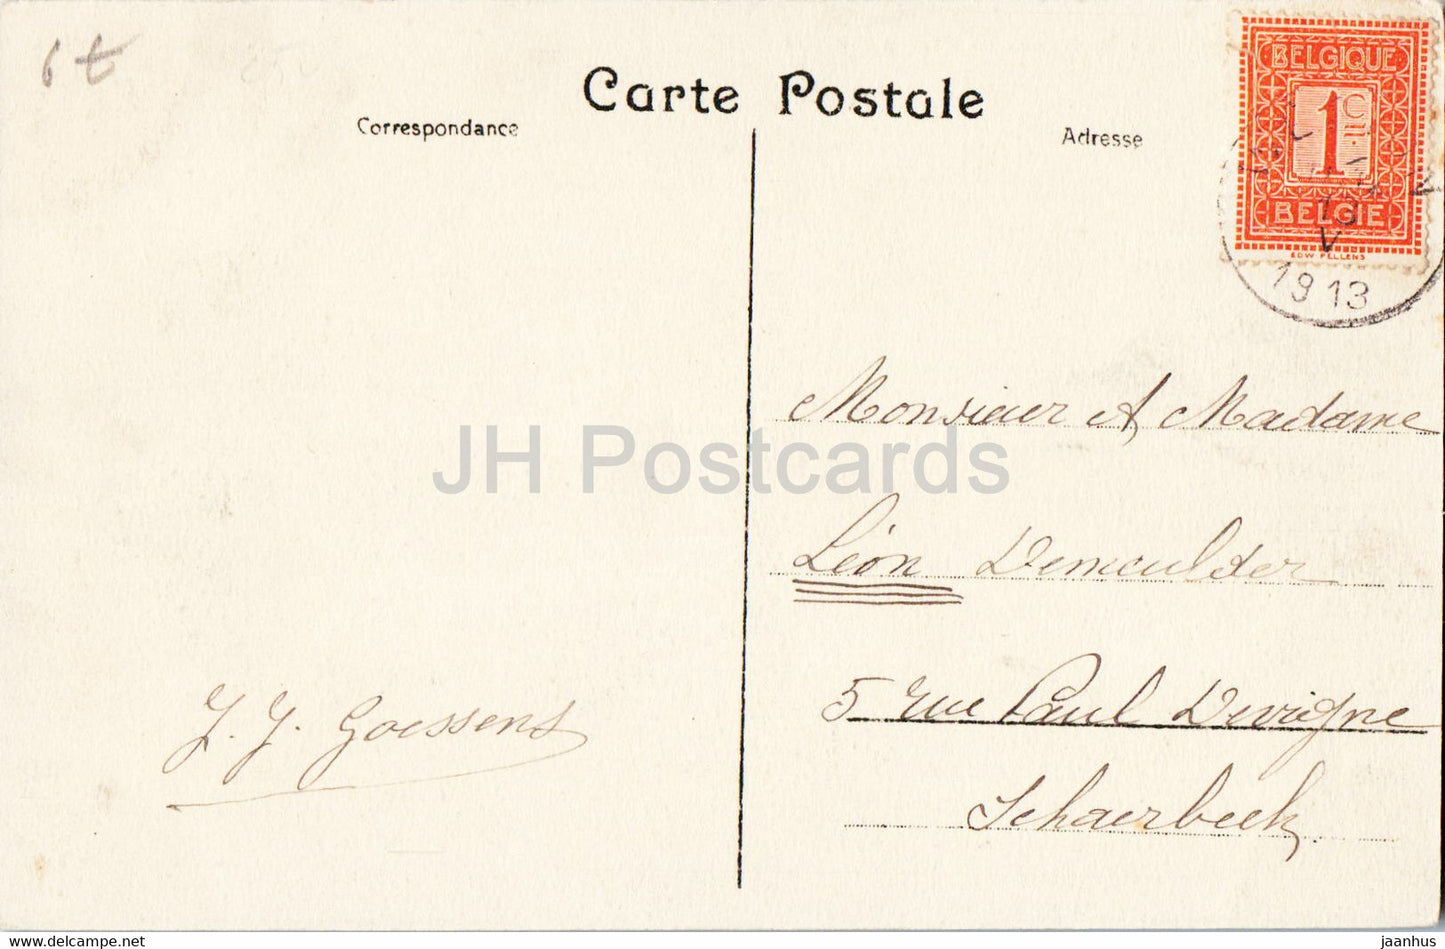 6 t
Carte Postale
Correspondance
Adresse
BELGIQUE
1 C
BELGIE
EDW PELLENS
13
V
1913
Monsieur et Madame
JH Postcards
Léon Demeulder
5 rue Paul Devigne
J. J. Goessens
Schaerbeek
www.delcampe.net
jaanhus